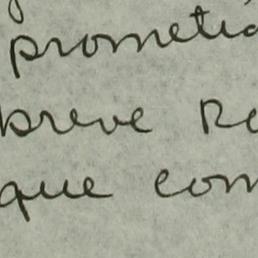 prometid
breve Re
que com